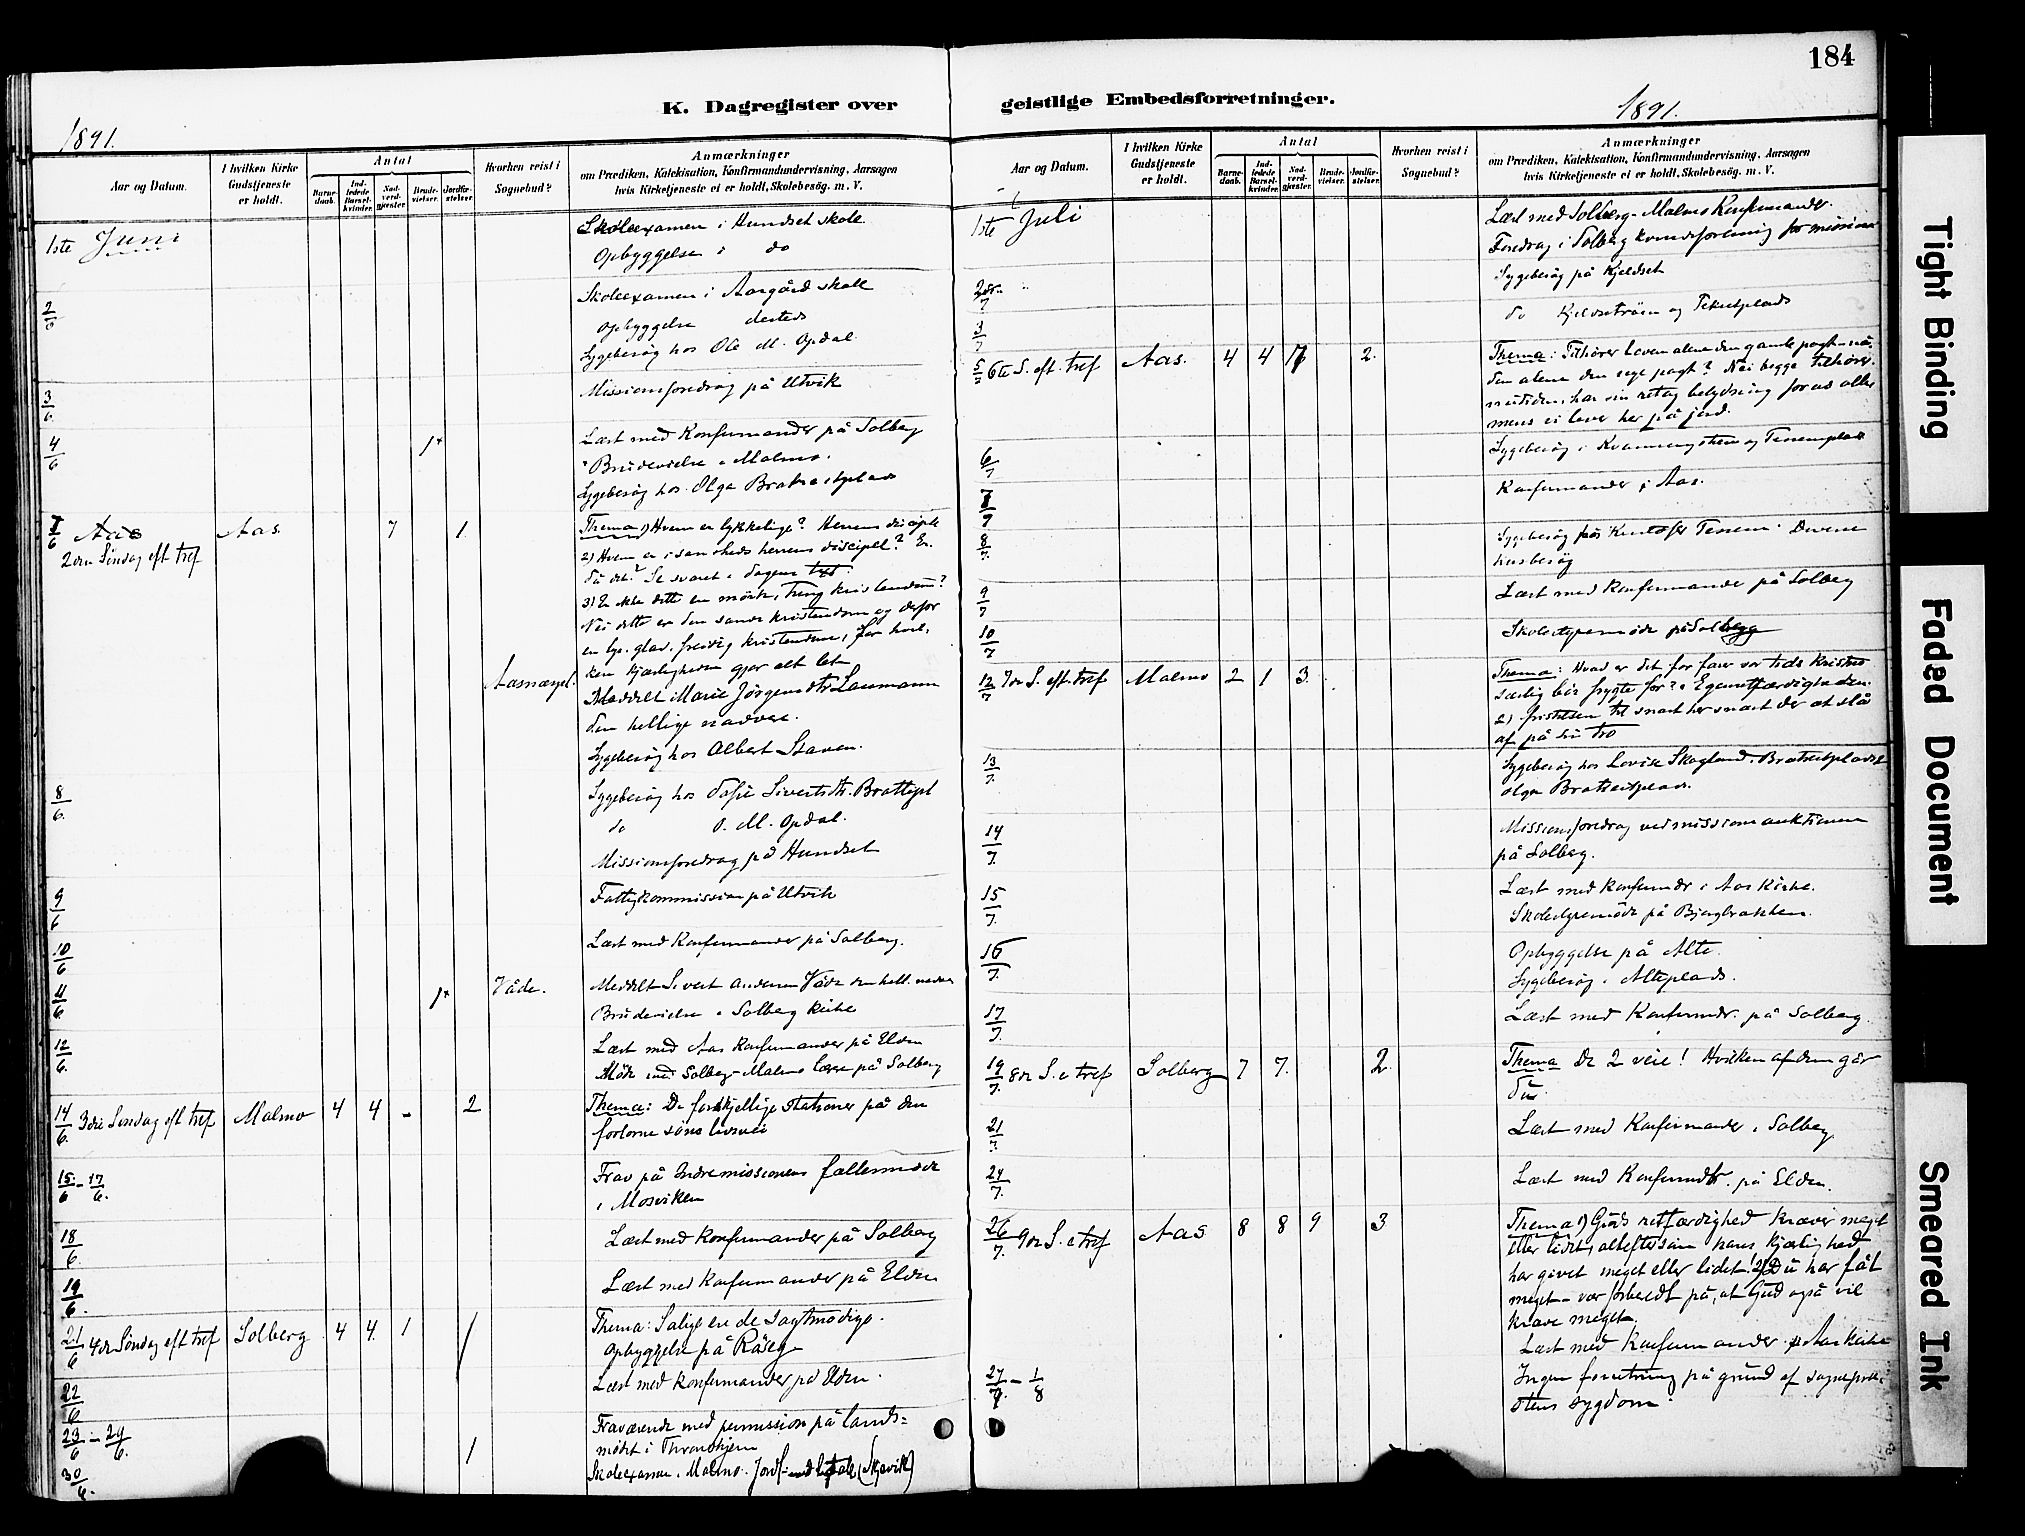 184
K. Dagregister over
geistlige Embedsforretninger.
1891.
1891.
Aar og Datum.
I hvilken Kirke
Gudstjeneste
er holdt.
Antal
Barne-
daab.
Ind-
ledede
Barsel-
kvinder.
Nad-
verd-
gjester.
Brude-
vielser.
Jordfæ-
stelser.
Hvorhen reist i
Sognebud?
Anmærkninger
om Prædiken, Katekisation, Konfirmandundervisning, Aarsagen
hvis Kirketjeneste ei er holdt, Skolebesøg. m. V.
1ste Juni
Skoleexamen i Hundset skole
Opbyggelse i do
2/6
Skoleexamen i Aargård skole
Opbyggelse dersteds
Sygebesøg hos Ole M. Opdal.
3/6
Missionsforedrag på Utvik
4/6
1
Læst med Konfirmander på Solberg
Brudevielse i Malmo.
Sygebesøg hos Olga Bratreitplads
7/6 Aas
2den Søndag eft tref
Aas.
7
1
Thema 1) Hvem er lykkelige? Herrens disciple
2) Hvem er i sandheds herrens discipel? Er
du det? Se svaret i dagens text.
3) Er ikke dette en mørk, tung kristendom?
Nei dette er den sande kristendom og derfor
en lys, glad, freidig kristendom, for hvil-
ken kjærligheden gjør alt let
Aasnæset.
Meddelt Marie Jørgensdtr Laumann
den hellige nadvere.
Sygebesøg hos Albert Staven.
8/6
Sygebesøg hos Sivertsdtr. Brattupl
do O. M. Opdal.
Missionsforedrag på Hundset
9/6
Fattigkommission på Utvik
10/6
Læst med Konfirmander på Solberg.
11/6
1
Våde.
Meddelt Sivert Andersen Våde den hell. nadver
Brudevielse i Solberg kirke
12/6
Læst med Aas Konfirmander på Elden
Møde med Solberg-Malmo lærere på Solberg
14/6 3die Søndag eft tref
Malmo
4 4 - 2
Thema: De forskjellige stationer på den
fortorne søns livsvei
15/6 - 17/6
Frav på Indremissionens fællesmøde
i Mosviken
18/6
Læst med Konfirmander på Solberg
19/6
Læst med Konfirmander på Elden
21/6 4de Søndag eft tref
Solberg
4 4 1 1
Thema: Salige ere de sagtmodige.
Opbyggelse på Råseg
22/6
Læst med Konfirmander på Elden.
23/6 - 29/6
Fraværende med permission på lands-
mødet i Throndhjem
30/6
1
Skoleexamen i Malmo. Jordf. med ligtale (Skjevik)
Aar og Datum.
I hvilken Kirke
Gudstjeneste
er holdt.
Antal
Barne-
daab.
Ind-
ledede
Barsel-
kvinder.
Nad-
verd-
gjester.
Brude-
vielser.
Jordfæ-
stelser.
Hvorhen reist i
Sognebud?
Anmærkninger
om Prædiken, Katekisation, Konfirmandundervisning, Aarsagen
hvis Kirketjeneste ei er holdt, Skolebesøg. m. V.
1ste Juli
Læst med Solberg-Malmo Konfirmander.
Foredrag i Solberg kvindeforening for missionen
2/7
Sygebesøg på Kjeldset
3/7
do Kjeldsetrøen og
5/7 6te S. eft. tref
Aas.
4 4 2.
Thema: Tilhører loven alene den gamle pagt - nå-
den alene den nye pagt? Nei begge tilhører
nutiden, har sin ret og betydning for os alle
mens vi lever her på jord.
6/7
Sygebesøg i og
7/7
Konfirmander i Aas.
8/7
Sygebesøg hos Tessem. Diverse
husbesøg
9/7
Læst med Konfirmander på Solberg
10/7
Skolestyremøde på Solberg
12/7 7de S. eft. tref
Malmo
2 1 3.
Thema: Hvad er det for farer vor tids kristne
særlig bør frygte for? 1 Egenretfærdigheden.
2) fristelsen til snart her snart der at slå
af på sin tro
13/7
Sygebesøg hos Lovise Skogland. Bratreitplads
Olga Bratreitplads.
14/7
Missionsforedrag ved missionsauktionen
på Solberg.
15/7
Læst med konfirmdr i Aas Kirke.
Skolestyremøde på Bjergbrakken.
16/7
Opbyggelse på Alte.
Sygebesøg i Alteplads.
17/7
Læst med Konfirmdr. på Solberg.
19/7 8de S. e tref
Solberg
7 7. 2.
Thema De 2 veie! Hvilken af dem går
du.
21/7
Læst med Konfirmander i Solberg
24/7
Læst med Konfirmdtr. på Elden.
26/7 9de S. e tref
Aas
8 8 9 3
Thema 1) Guds retfærdighed kræver meget
eller lidet, alteftersom hans kjærlighed
har givet meget eller lidet! 2) Du har fåt
meget - vær forberedt på, at Gud også vil
kræve meget.
Læst med Konfirmander på Aas kirke
27/7 - 1/8
Ingen forretning på grund af sognepræ-
stens sygdom.
Tight Binding
Faded Document
Smeared Ink